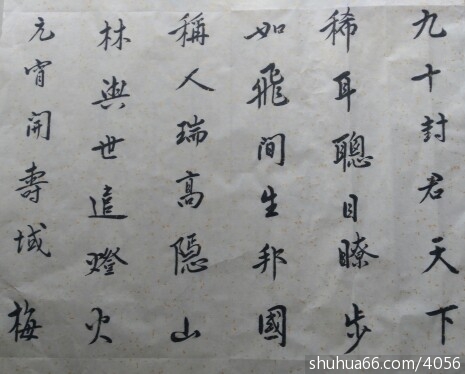 九十封君天下
稀耳聰目瞭步
如飛間生邦國
稱人瑞高隱山
林與世違燈火
元宵開壽域梅
shuhua66.com/4056